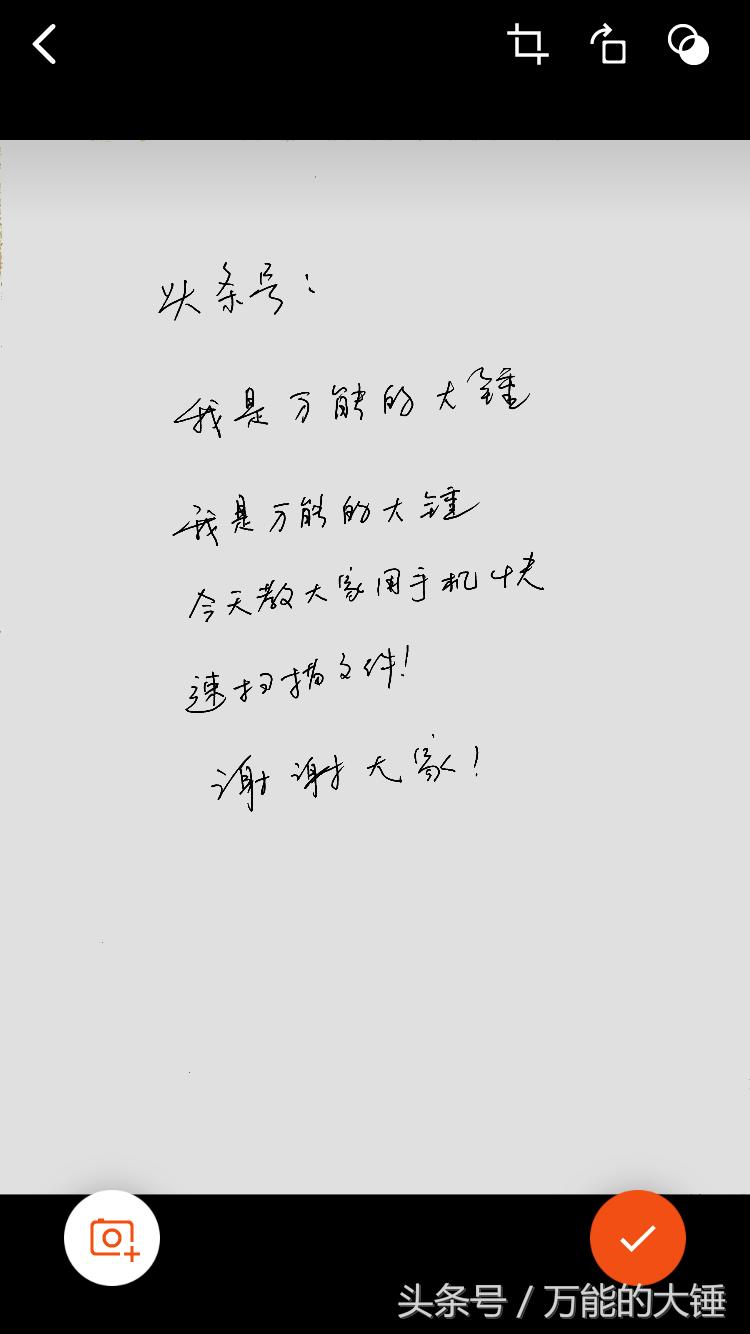 头条号：
我是万能的大锤
我是万能的大锤
今天教大家用手机快
速扫描文件！
谢谢大家！
头条号 / 万能的大锤